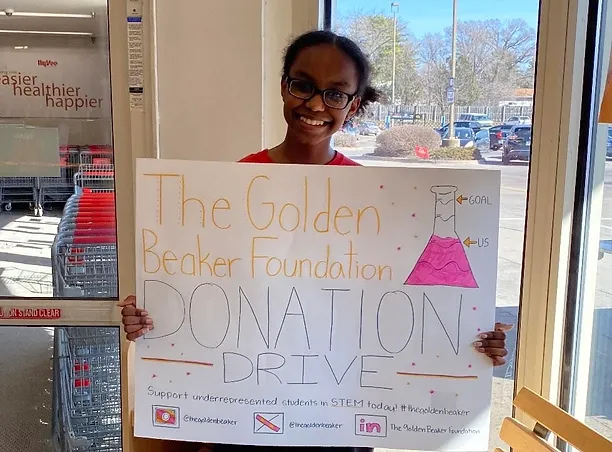 HyVee
easier
healthier
happier
CAUTION STAND CLEAR
The Golden
Beaker Foundation
GOAL
US
DONATION
DRIVE
Support underrepresented students in STEM today! #thegoldenbeaker
@thegoldenbeaker
@thegoldenbeaker
in
The Golden Beaker Foundation